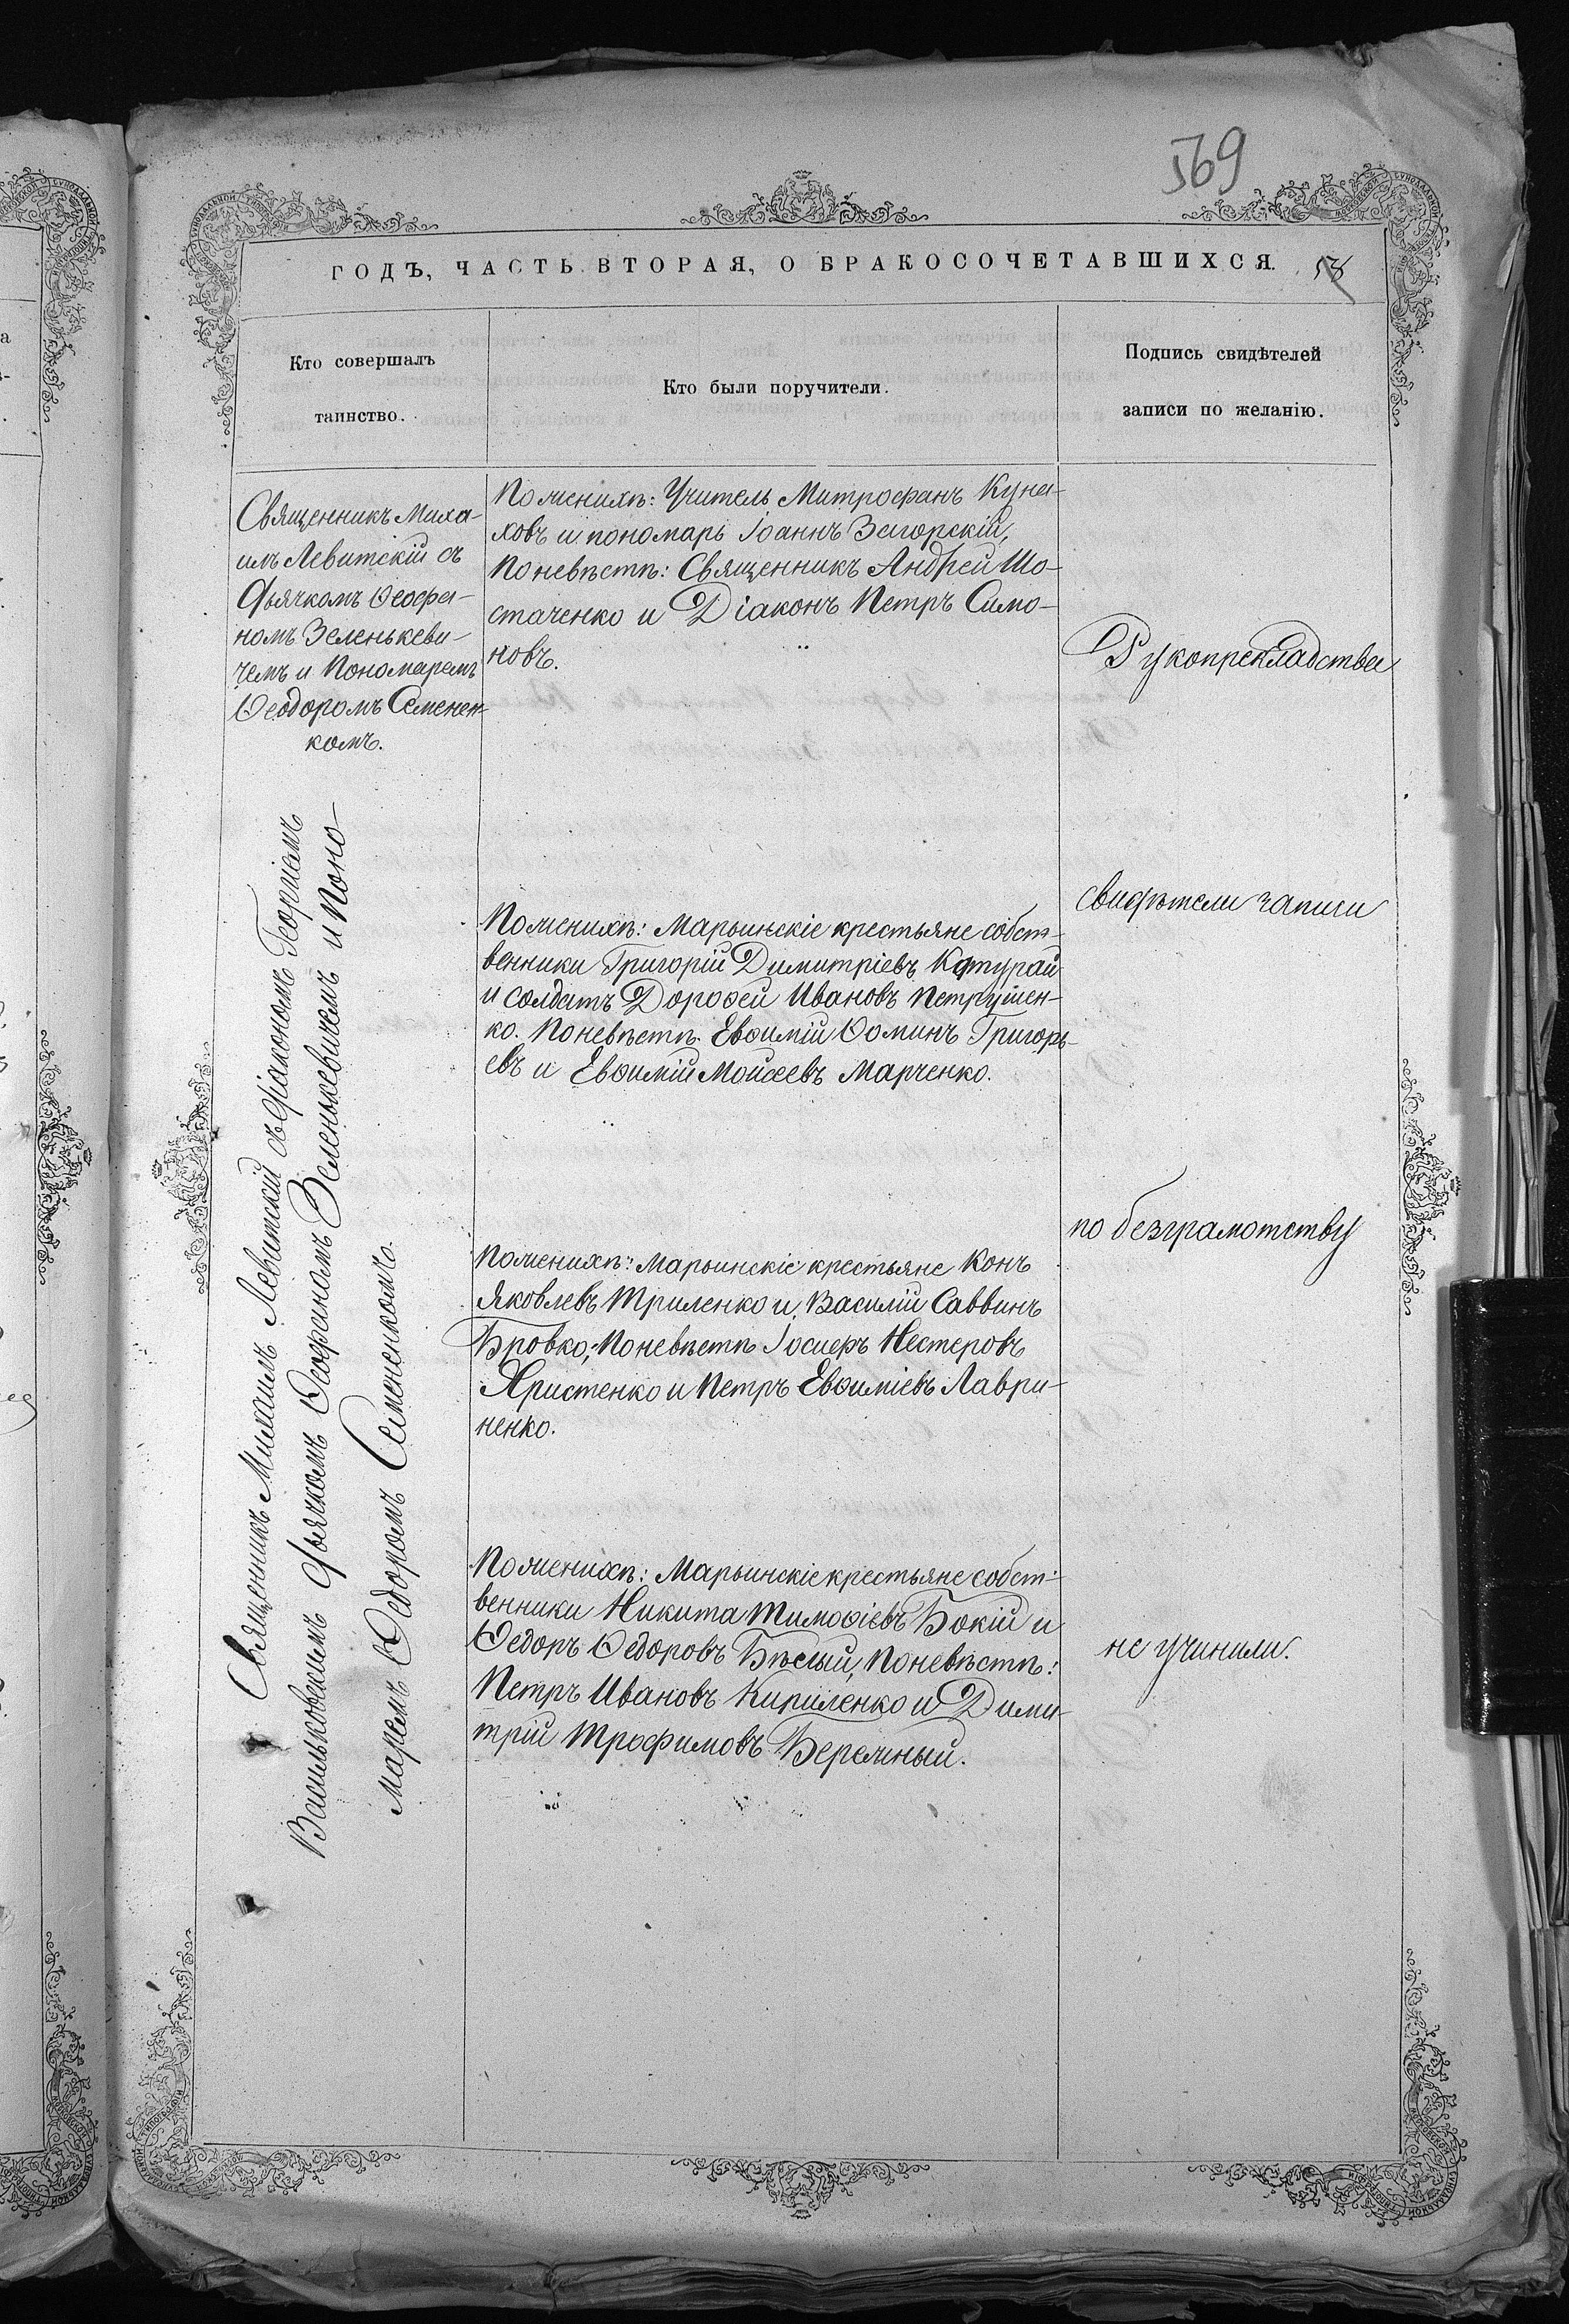 569
ГОДЪ, ЧАСТЬ ВТОРАЯ, О БРАКОСОЧЕТАВШИХСЯ.
Кто совершалъ
таинство.
Кто были поручители.
Подпись свидѣтелей
записи по желанію.
Священникъ Миха-
илъ Левитскій съ
Дьячкомъ Ѳеофа-
номъ Зеленькеви-
чемъ и Пономаремъ
Ѳеодоромъ Семенен-
комъ.
По женихѣ: Учитель Митрофанъ Куна-
ховъ и пономарь Іоаннъ Загорскій,
По невѣстѣ: Священникъ Андрей Шо-
стаченко и Діаконъ Петръ Симо-
новъ.
Рукоприкладства
Священникъ Михаилъ Левитскій съ Діакономъ Георгіемъ
Васильковскимъ Дьячкомъ Ѳеофаномъ Зеленькевичемъ и Поно-
маремъ Ѳедоромъ Семененкомъ.
По женихѣ: Марьинскіе крестьяне собст-
венники Григорій Димитріевъ Катурай
и солдатъ Дороѳей Ивановъ Петрушен-
ко. По невѣстѣ. Евѳимій Ѳоминъ Григорь-
евъ и Евѳимій Моисеевъ Марченко.
свидѣтели записи
По женихѣ: Марьинскіе крестьяне Конъ
Яковлевъ Триленко и Василій Саввинъ
Бровко; По невѣстѣ Іосифъ Нестеровъ
Яристенко и Петръ Евѳиміевъ Лаври-
ненко.
по безграмотству
По женихѣ: Марьинскіе крестьяне собст-
венники Никита Тимоѳіевъ Бокій и
Ѳедоръ Ѳедоровъ Бѣлый, По невѣстѣ:
Петръ Ивановъ Кириленко и Дими-
трій Трофимовъ Бережный.
не учинили.